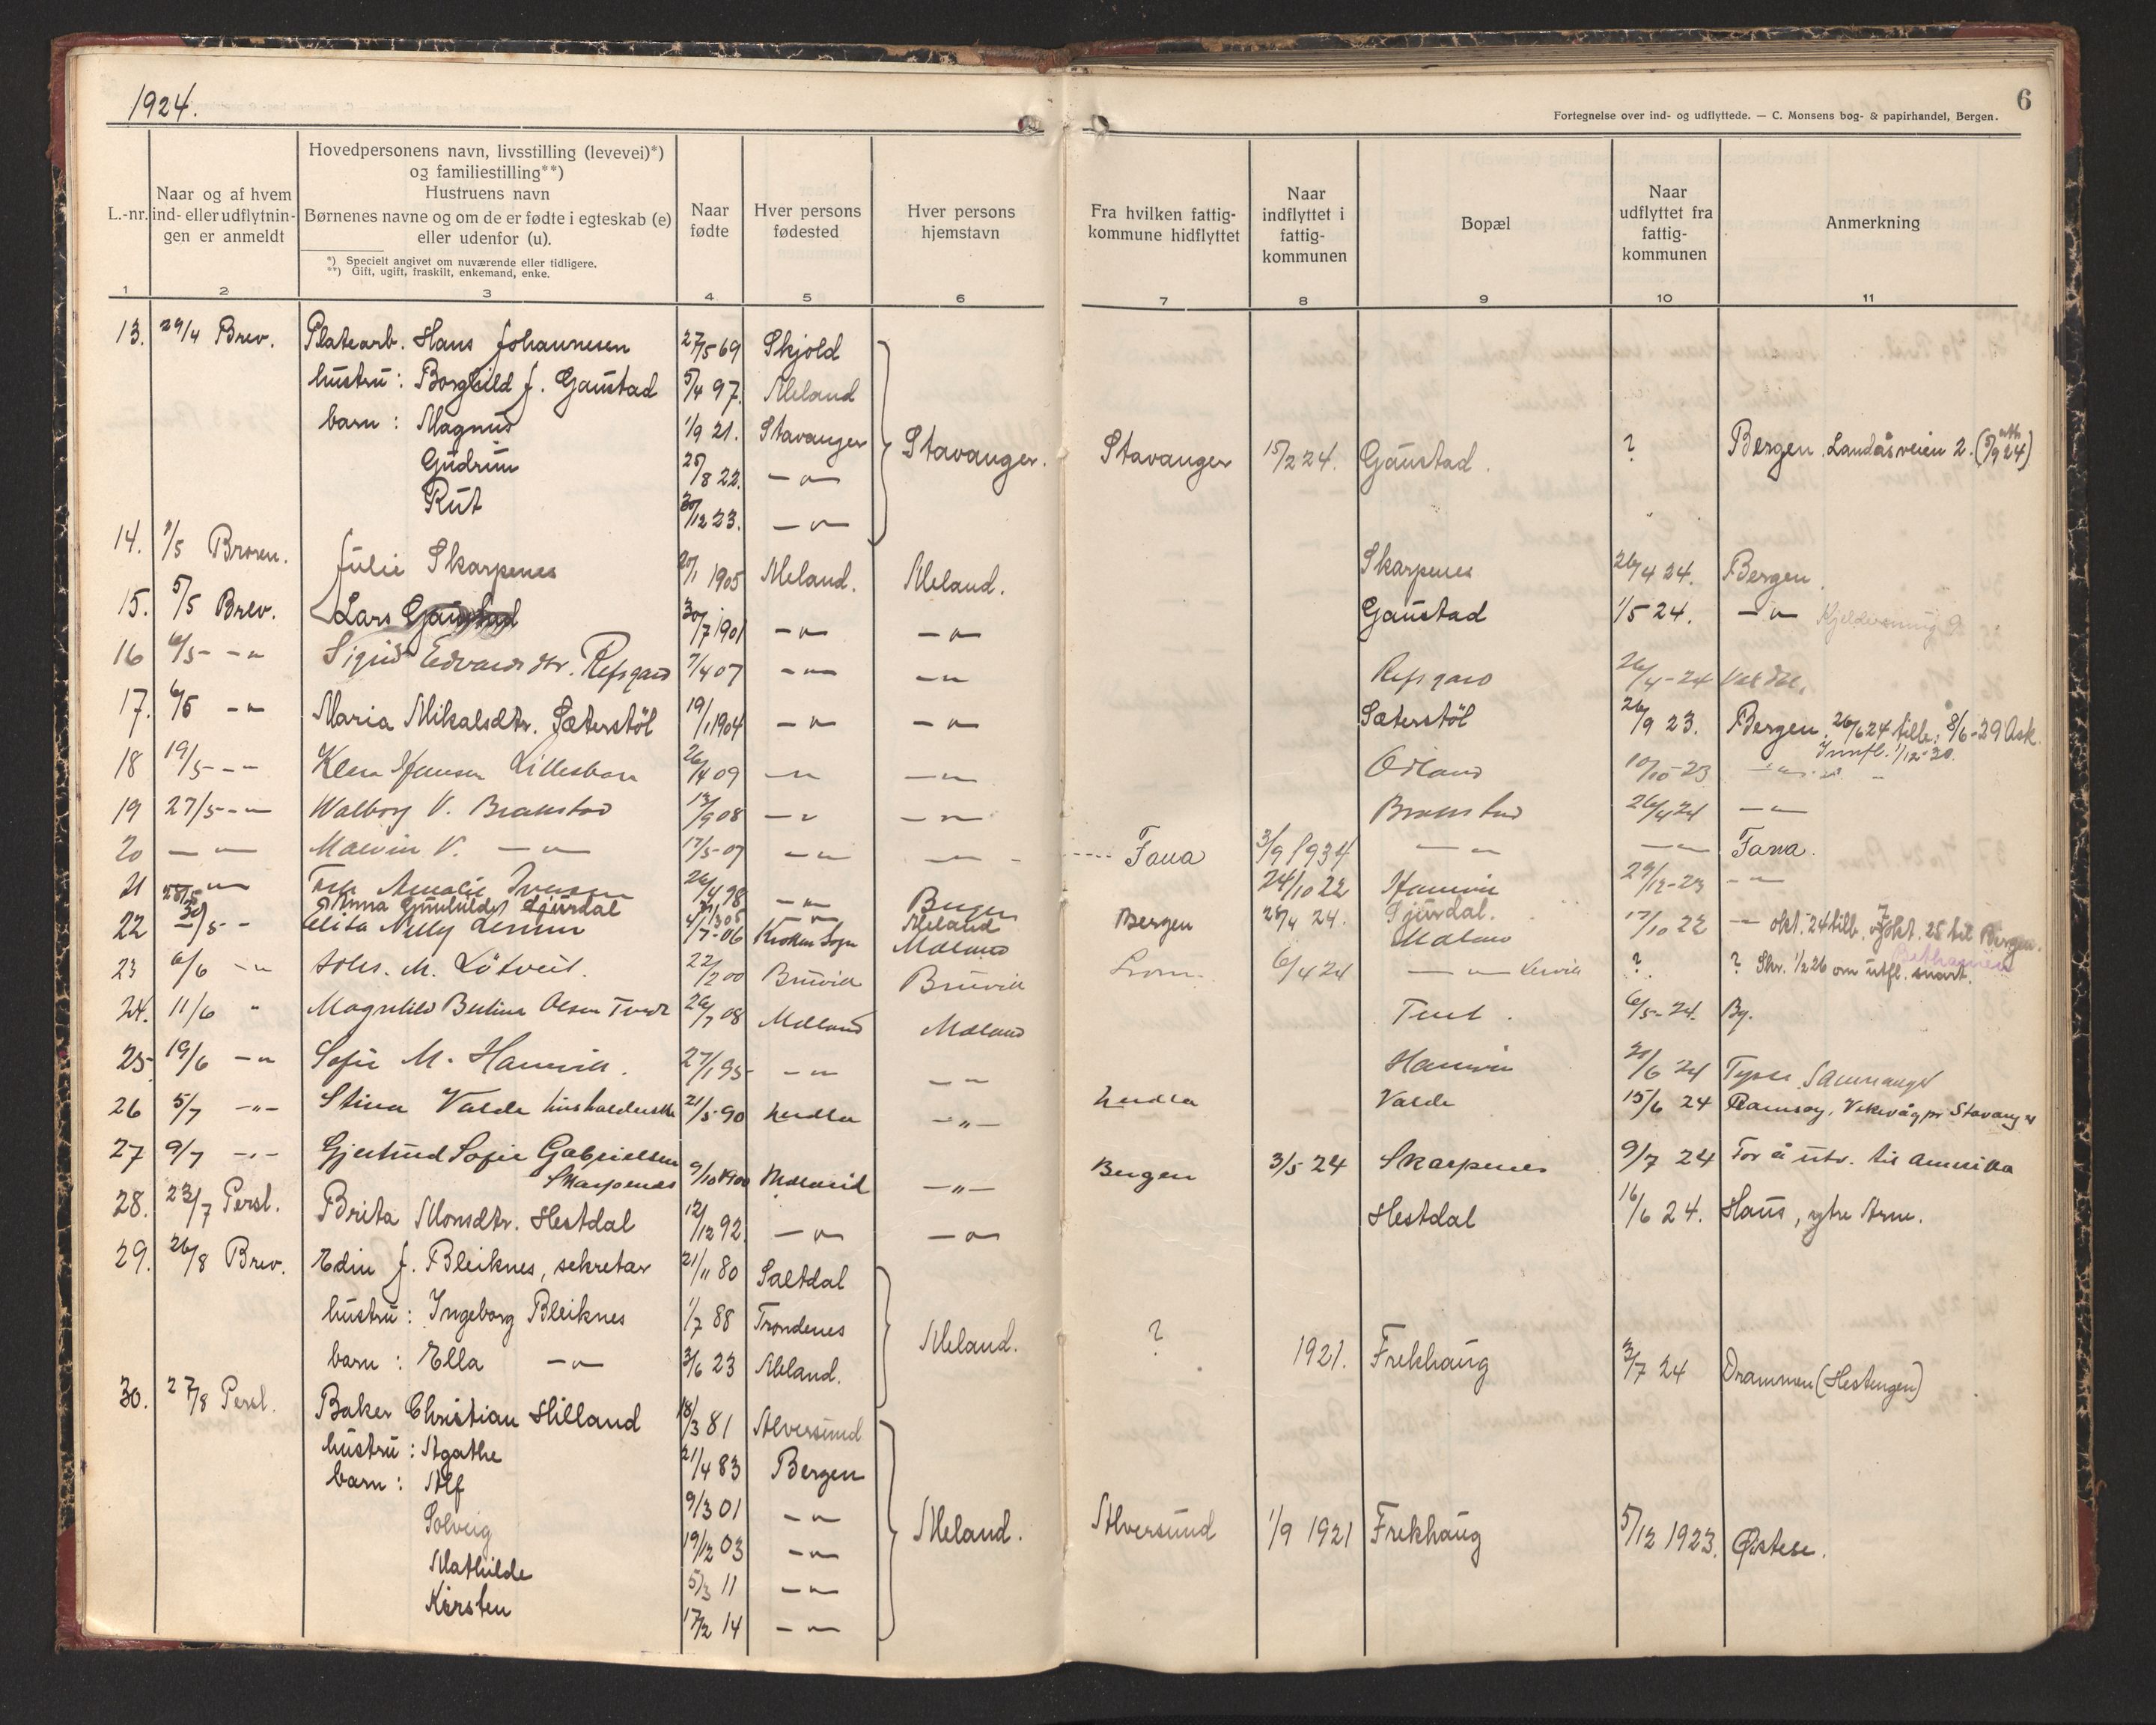 1924.
6
Fortegnelse over ind- og udflyttede. — C. Monsens bog- & papirhandel, Bergen.
L.-nr.
Naar og af hvem ind- eller udflytnin- gen er anmeldt
Hovedpersonens navn, livsstilling (levevei)*)
og familiestilling**)
Hustruens navn
Børnenes navne og om de er fødte i egteskab (e)
eller udenfor (u).
*) Specielt angivet om nuværende eller tidligere.
**) Gift, ugift, fraskilt, enkemand, enke.
Naar fødte
Hver persons fødested
Hver persons hjemstavn
Fra hvilken fattig- kommune hidflyttet
Naar indflyttet i fattig- kommunen
Bopæl
Naar udflyttet fra fattig- kommunen
Anmerkning
1 2 3 4 5 6 7 8 9 10 11
13. 29/4 Brev. Platearb. Hans Johannesen 27/5 69 Skjold
hustru: Borghild J. Gaustad 5/4 97. Meland
barn: Magnus 1/9 21. Stavanger Stavanger. Stavanger 15/2 24. Gaustad. ? Bergen. Landåsveien 2. (5/9 24)
Gudrun 25/8 22. — " —
Rut 30/12 23. — " —
14. 1/5 Broren. Julie Skarpenes 20/1 1905 Meland. Meland. Skarpenes 26/4 24. Bergen.
15. 5/5 Brev. Lars Gaustad 30/7 1901 — " — — " — Gaustad 1/5 24. — " —
16 6/5 - " Sigrid Edvardsdtr. Refsgard 7/4 07 — " — — " — Refsgard 26/4-24
17. 6/5 — " Maria Mikalsdtr. Sæterstöl 19/1 1904 — " — — " — Sæterstöl 26/9 23. Bergen. 26/6 24 tilb. 8/6-29 Ask.
Innfl. 1/12-30.
18 19/5 - - Lillesbara 26/4 09 — " — — " — Ådland 10/10-23
19 27/5 - " Walborg V. Brakstad 13/9 08 — " — — " — Brakstad 26/4 24 — " —
20 — " — Malvin V. — " — 17/5-07 — " — — " — Fana 3/9 1934 — " — — " — Fana.
21 — " Amalie Iversen 26/4 98 — " — Bergen 24/10 22 Hamvik 29/12-23 — " —
Anna Gunhild Gjervdal Meland Bergen 25/4 24. Gjervdal. — okt. 24 tilb. 7/okt. 25 til Bergen.
22 Nelly 4/7-06 Meland Meland 17/10 22
23 6/6 — " Johs. M. Lötveit. 22/2 00 Bruvik Bruvik 6/4 24 — " — ? ? Skr. 1/2 26 om utfl. snart.
24. 11/6 " Magnhild Bertine Olsen Tveit 26/7 08 Meland Meland Tveit. 6/5-24. Bg.
25 19/6 — " Sofie M. Hamvik. 27/1 95 — " — — " — Hamvik 21/6 24 Tysse Samnanger
26 5/7 — " — Stina Valde husholderske 21/5-90 Herdla — " — Herdla Valde 15/6 24 Ramsøy, Vikevåg pr Stavanger
27 9/7 — " — Gjertrud Sofie Gabrielsen
Skarpenes 9/10 1900 Meland — " — Bergen 3/5 24 Skarpenes 9/7 24 For å utv. til Amerika
28. 23/7 Persl. Brita Monsdtr. Hestdal 12/12 92. — " — — " — Hestdal 16/6 24. Haus, ytre Arne.
29. 26/8 Brev. Edin J. Bleiknes, sekretær 21/11 80 Saltdal
hustru: Ingeborg Bleiknes 1/7 88 Trondenes Meland. ? 1921. Frekhaug 3/7 24 Drammen (Hestengen)
barn: Ella — " — 3/6 23 Meland.
30. 27/8 Persl. Baker Christian Hilland 18/3 81 Alversund
hustru: Agathe 21/4 83 Bergen
barn: Alf 9/3 01 — " —
Solveig 19/12 03 — " — Meland. Alversund 1/9 1921 Frekhaug 5/12 1923. Østese.
Mathilde 5/3 11 — " —
Kirsten 17/2 14 — " —